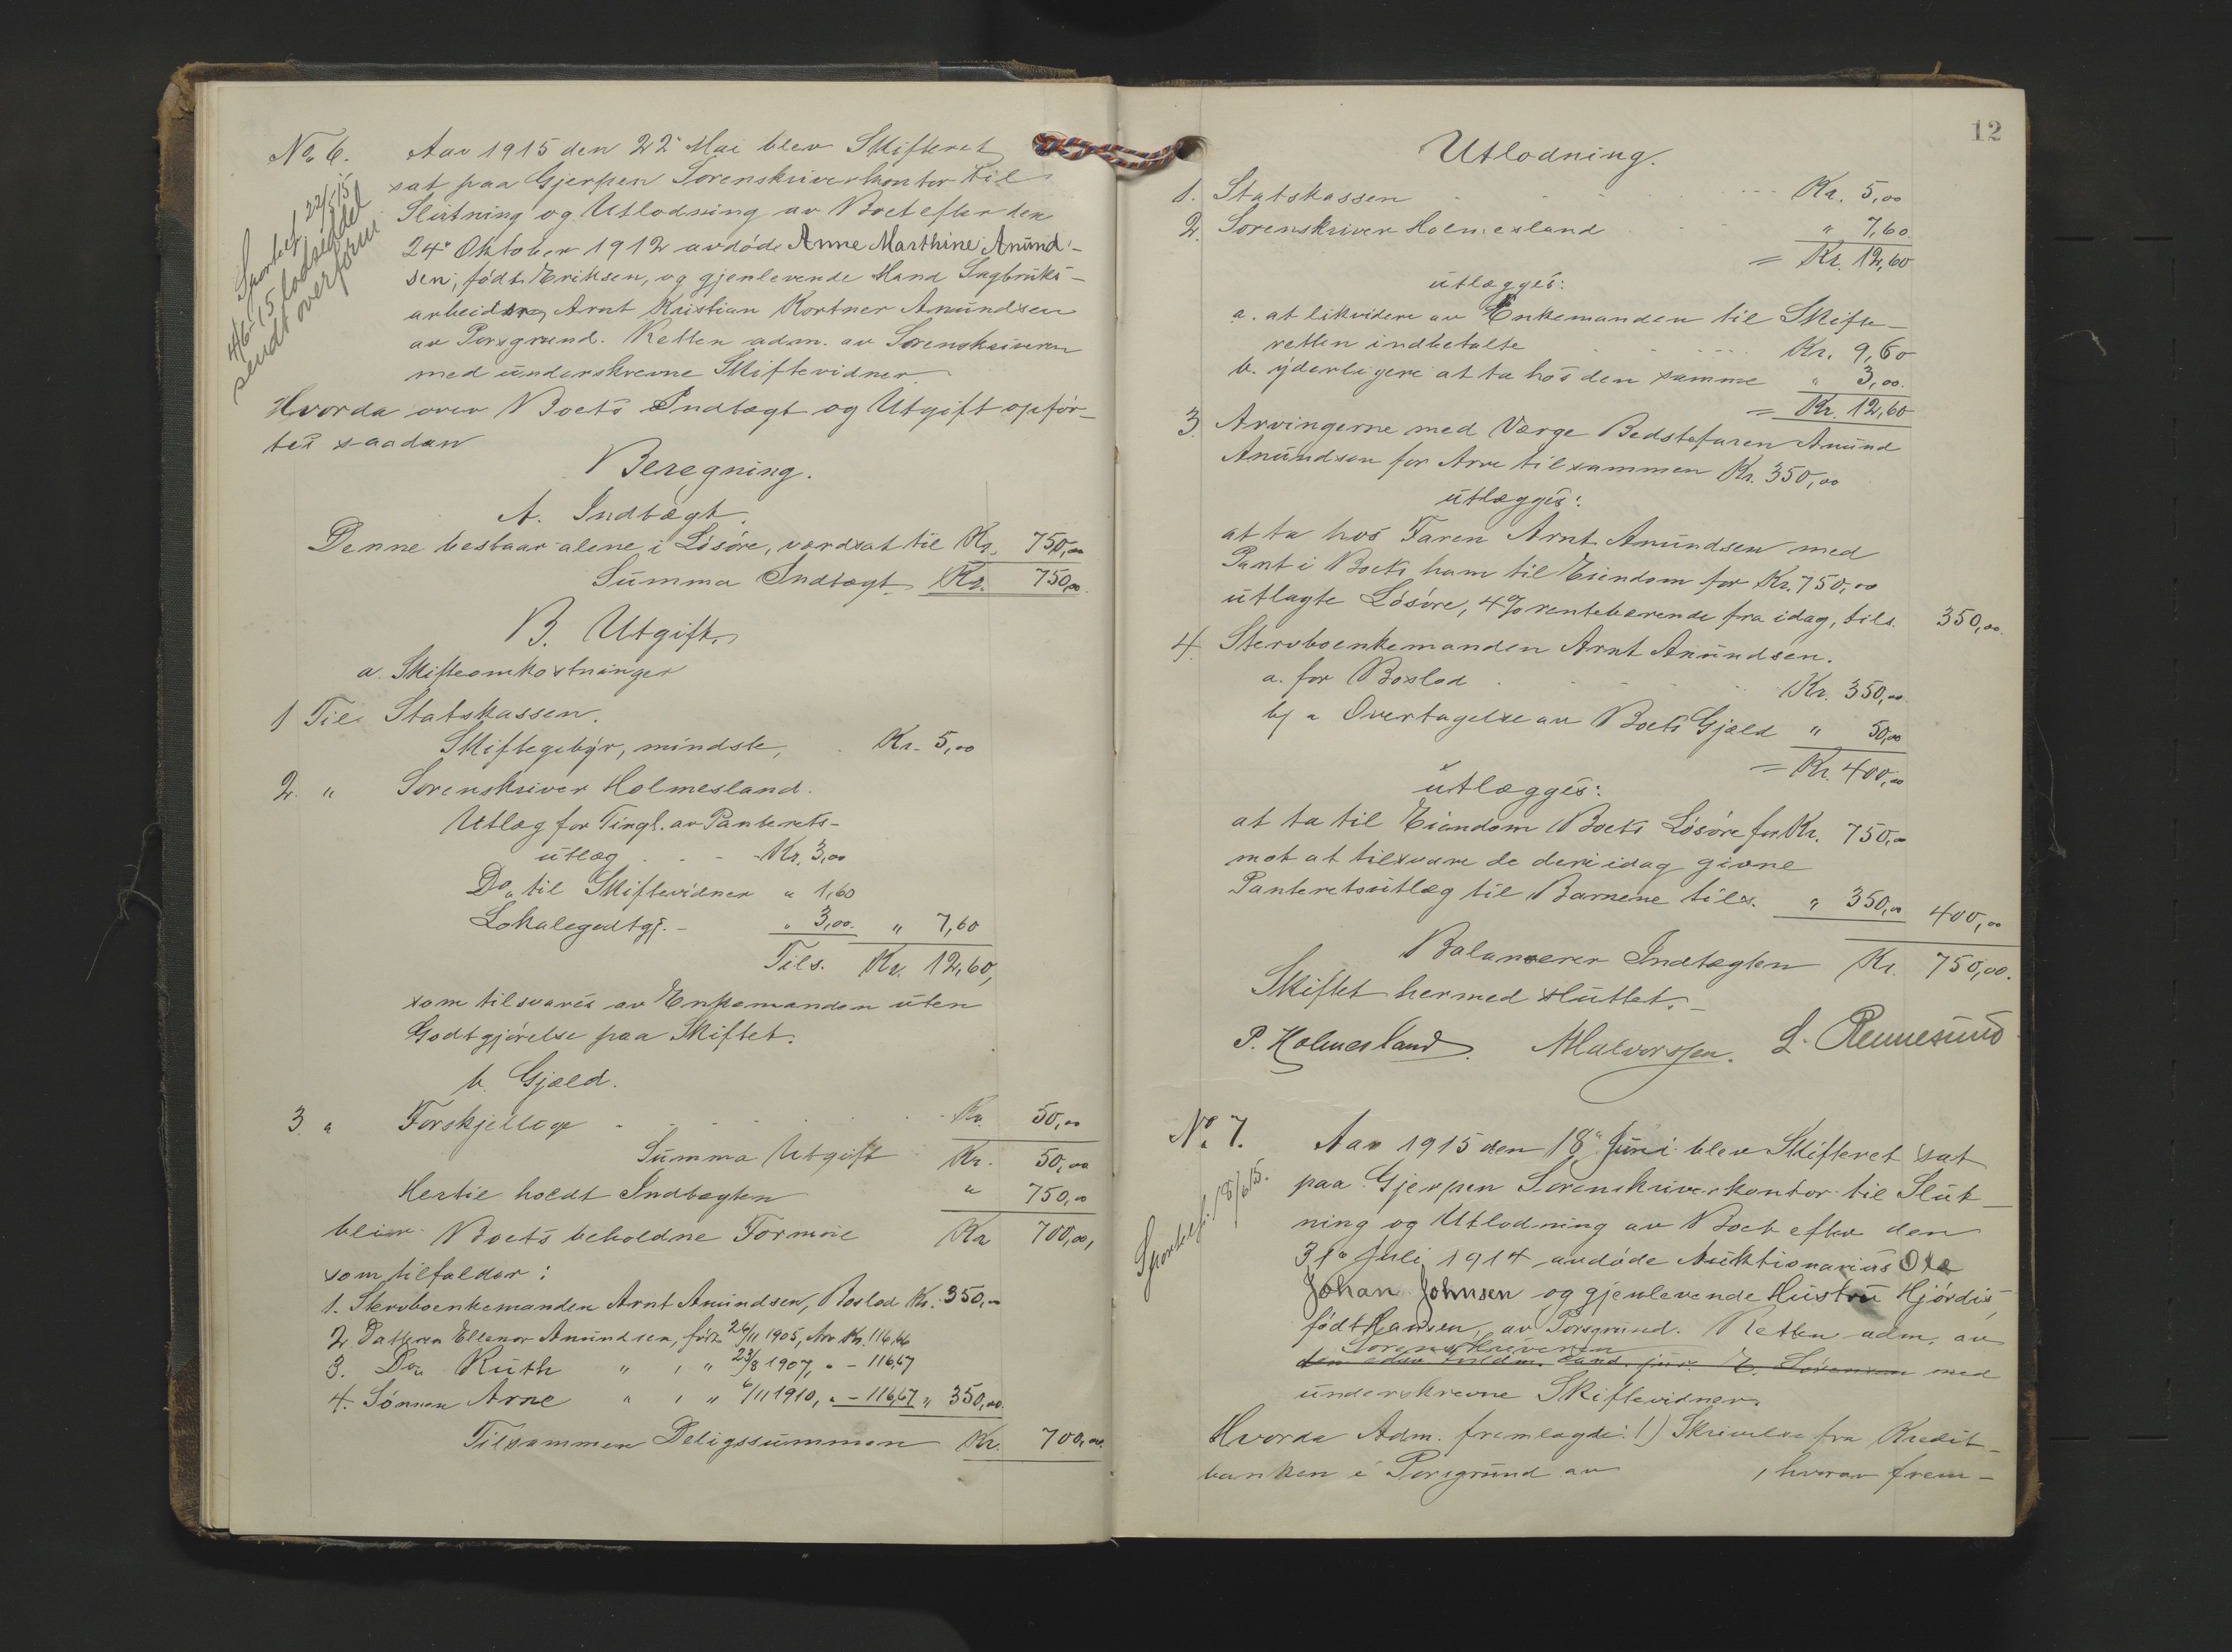 No 6. Aar 1915 den 22' Mai blev Skifteret
sat paa Gjerpen Sorenskriverkontor til
Slutning og Utlodning av Boet efter den
24' Oktober 1912 avdöde Anne Marthine Anund-
sen, födt Eriksen, og gjenlevende Mand Sagbruks-
arbeider Arnt Kristian Kortner Anundsen
av Porsgrund. Retten adm. av Sorenskriveren
med underskrevne Skiftevidner.
Sportel. 22/5-15
4/6-15 lodseddel
sendt overform
Hvorda over Boets Indtægt og Utgift opför-
tes saadan
Beregning.
A. Indtægt.
Denne bestaar alene i Lösöre, værdsat til Kr. 750,00
Summa Indtægt Kr. 750,00
B. Utgift.
a. Skifteomkostninger
1 Til Statskassen.
Skiftegebyr, mindste, Kr. 5,00
2. " Sorenskriver Holmesland.
Utlæg for Tingl. av Panterets-
utlæg Kr. 3,00
Do. til Skiftevidner " 1,60
Lokalegodtgj. - " 3,00. " 7,60
Tils. Kr. 12,60,
som tilsvares av Enkemanden uten
Godtgjörelse paa Skiftet.
b. Gjæld.
3. " Forskjellige Kr. 50,00
Summa Utgift Kr. 50,00
Hertil holdt Indtægten " 750,00
bliver Boets beholdne Formue Kr 700,00,
som tilfalder:
1. Stervboenkemanden Arnt Anundsen, Boslod Kr. 350,00
2. Datteren Ellenor Anundsen, födt 26/11 1905, Arv Kr. 116,66
3. Do. Ruth " , " 23/8 1907, " - 116,67
4. Sönnen Arne " , " 6/11 1910, " - 116,67 " 350,00.
Tilsammen Delingssummen Kr. 700,00.
12
Utlodning.
1. Statskassen Kr. 5,00
2. Sorenskriver Holmesland " 7,60.
= Kr. 12,60
utlægges:
a. at likvidere av Enkemanden til Skifte-
retten indbetalte Kr. 9,60
b. yderligere at ta hos den samme " 3,00.
= Kr. 12,60
3. Arvingerne med Værge Bedstefaren Anund
Anundsen for Arv tilsammen Kr. 350,00
utlægges:
at ta hos Faren Arnt Anundsen med
Pant i Boets ham til Eiendom for Kr. 750,00
utlagte Lösöre, 4% rentebærende fra idag, tils. 350,00.
4. Stervboenkemanden Arnt Anundsen.
a. for Boslod Kr. 350,00
b/ " Overtagelse av Boets Gjæld " 50,00
= Kr. 400,00
utlægges:
at ta til Eiendom Boets Lösöre for Kr. 750,00
mot at tilsvare de deri idag givne
Panteretsutlæg til Barnene tils. " 350,00 400,00
Balanserer Indtægten Kr. 750,00.
Skiftet hermed sluttet.
P. Holmesland. AHalvorssen. L. Rennesund
No 7. Aar 1915 den 18' Juni blev Skifteret sat
paa Gjerpen Sorenskriverkontor til Slut-
ning og Utlodning av Boet efter den
31' Juli 1914 avdöde Auktionarius Ole
Johan Johnsen og gjenlevende Hustru Hjördis,
födt Hansen, av Porsgrund. Retten adm. av
Sorenskriveren
den edsv. fuldm. cand. jur. E. Sörensen med
underskrevne Skiftevidner.
Sportelf. 18/6 15.
Hvorda Adm. fremlagde: 1) Skrivelse fra Kredit-
banken i Porsgrund av , hvorav frem-